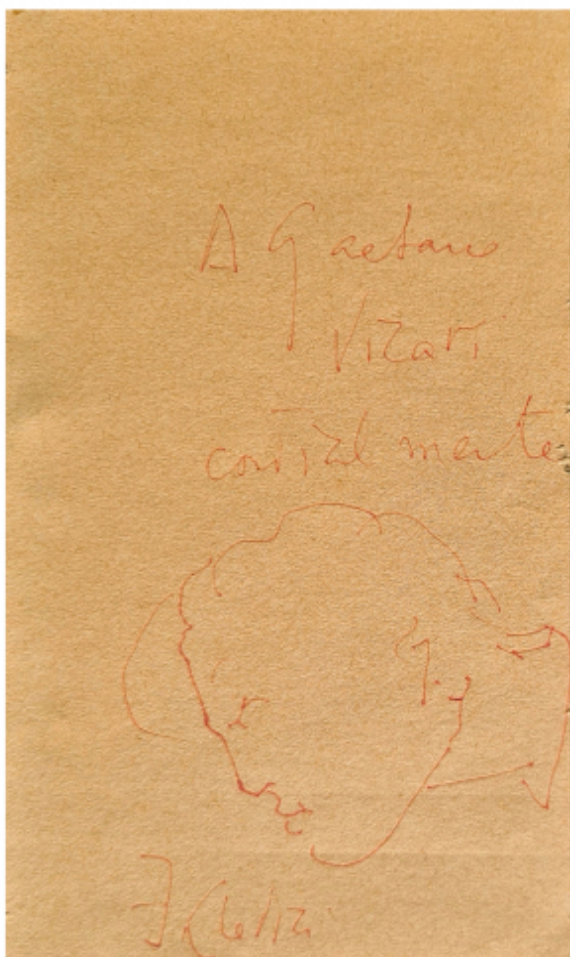 A Gaetano
Vizari
cordialmente